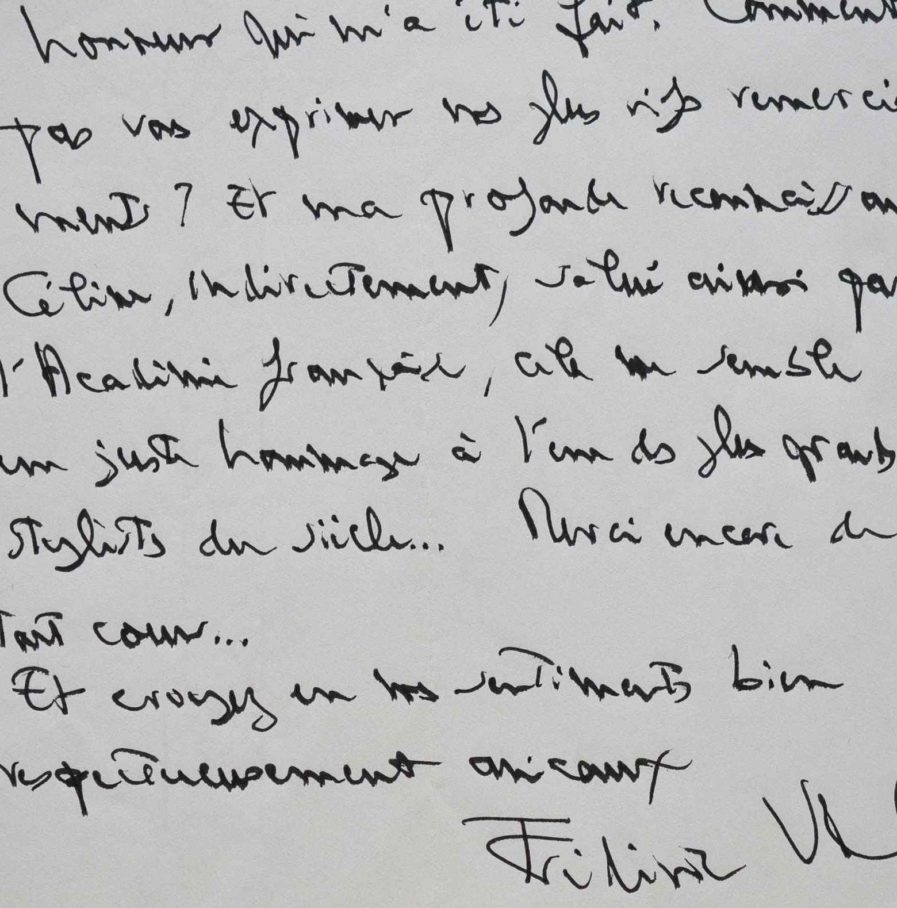 honneur qui m'a été fait. Comment
pas vous exprimer nos plus vifs remercie
ments ? Et ma profonde reconnaissan
Céline, indirectement, salué ainsi par
l'Académie française, cela me semble
un juste hommage à l'un des plus grands
stylistes du siècle... Merci encore de
tout cœur...
Et croyez en nos sentiments bien
respectueusement amicaux
Frédéric